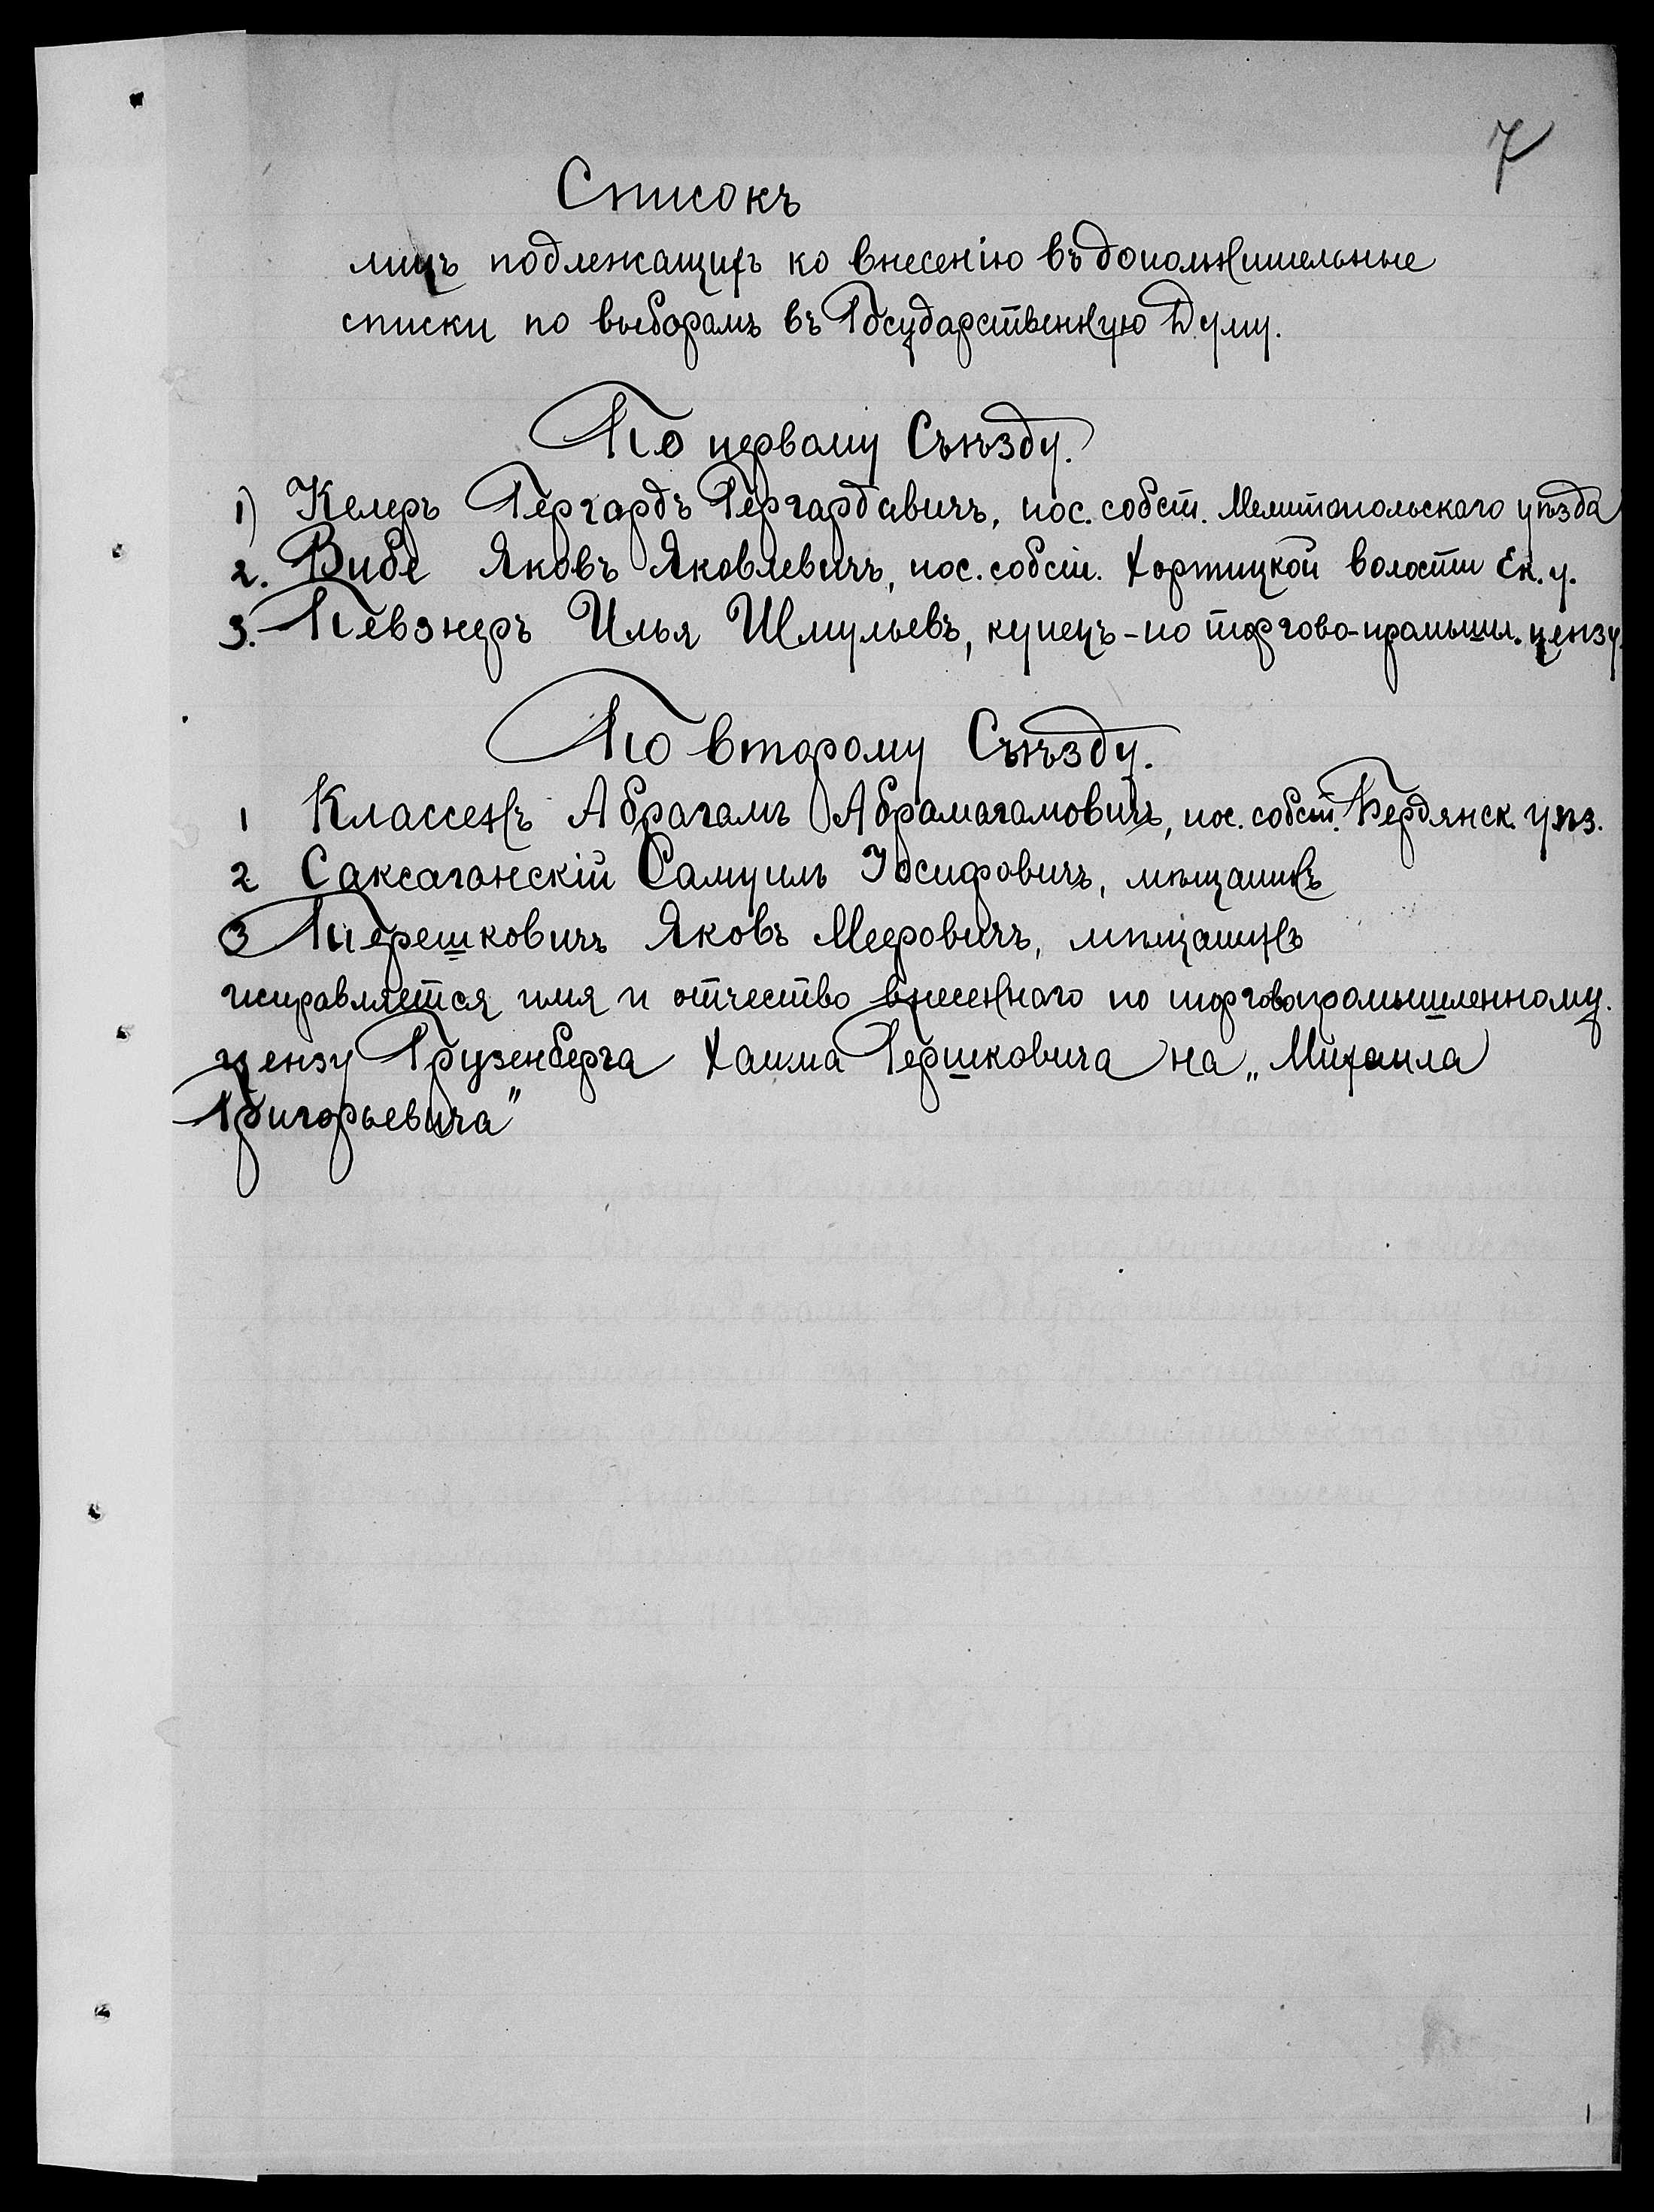 7
Списокъ
лицъ подлежащихъ ко внесенію въ дополнительные
списки по выборамъ въ Государственную Думу.
По первому Съѣзду.
1) Келеръ Гергардъ Гергардавичъ, пос. собст. Мелитопольскаго уѣзда
2. Вибе Яковъ Яковлевичъ, пос. собст. Хортицкой волости Ек. у.
3. Певзнеръ Илья Шмульевъ, купецъ - по торгово-промышл. цензу.
По второму Съѣзду.
1 Классенъ Абрагамъ Абрамагамовичъ, пос. собст. Бердянск. уѣз.
2 Саксаганскій Самуилъ Іосифовичъ, мѣщанинъ
3 Перешковичъ Яковъ Мееровичъ, мѣщанинъ
исправляется имя и отчество внесеннаго по торговопромышленному
цензу Грузенберга Хаима Гершковича на „Михаила
Григорьевича"